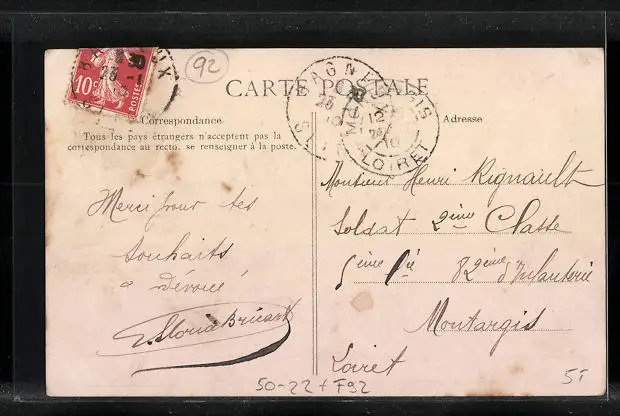 92
10c
POSTES
CARTE POSTALE
Correspondance
Tous les pays étrangers n'acceptent pas la
correspondance au recto. se renseigner à la poste.
Merci pour tes
souhaits
a dévoué
Adresse
LOIRET
Monsieur Henri Rignault
Soldat 2ème Classe
5ème Cie 82ème d'Infanterie
Montargis
Loiret
50-22 + F92
5T